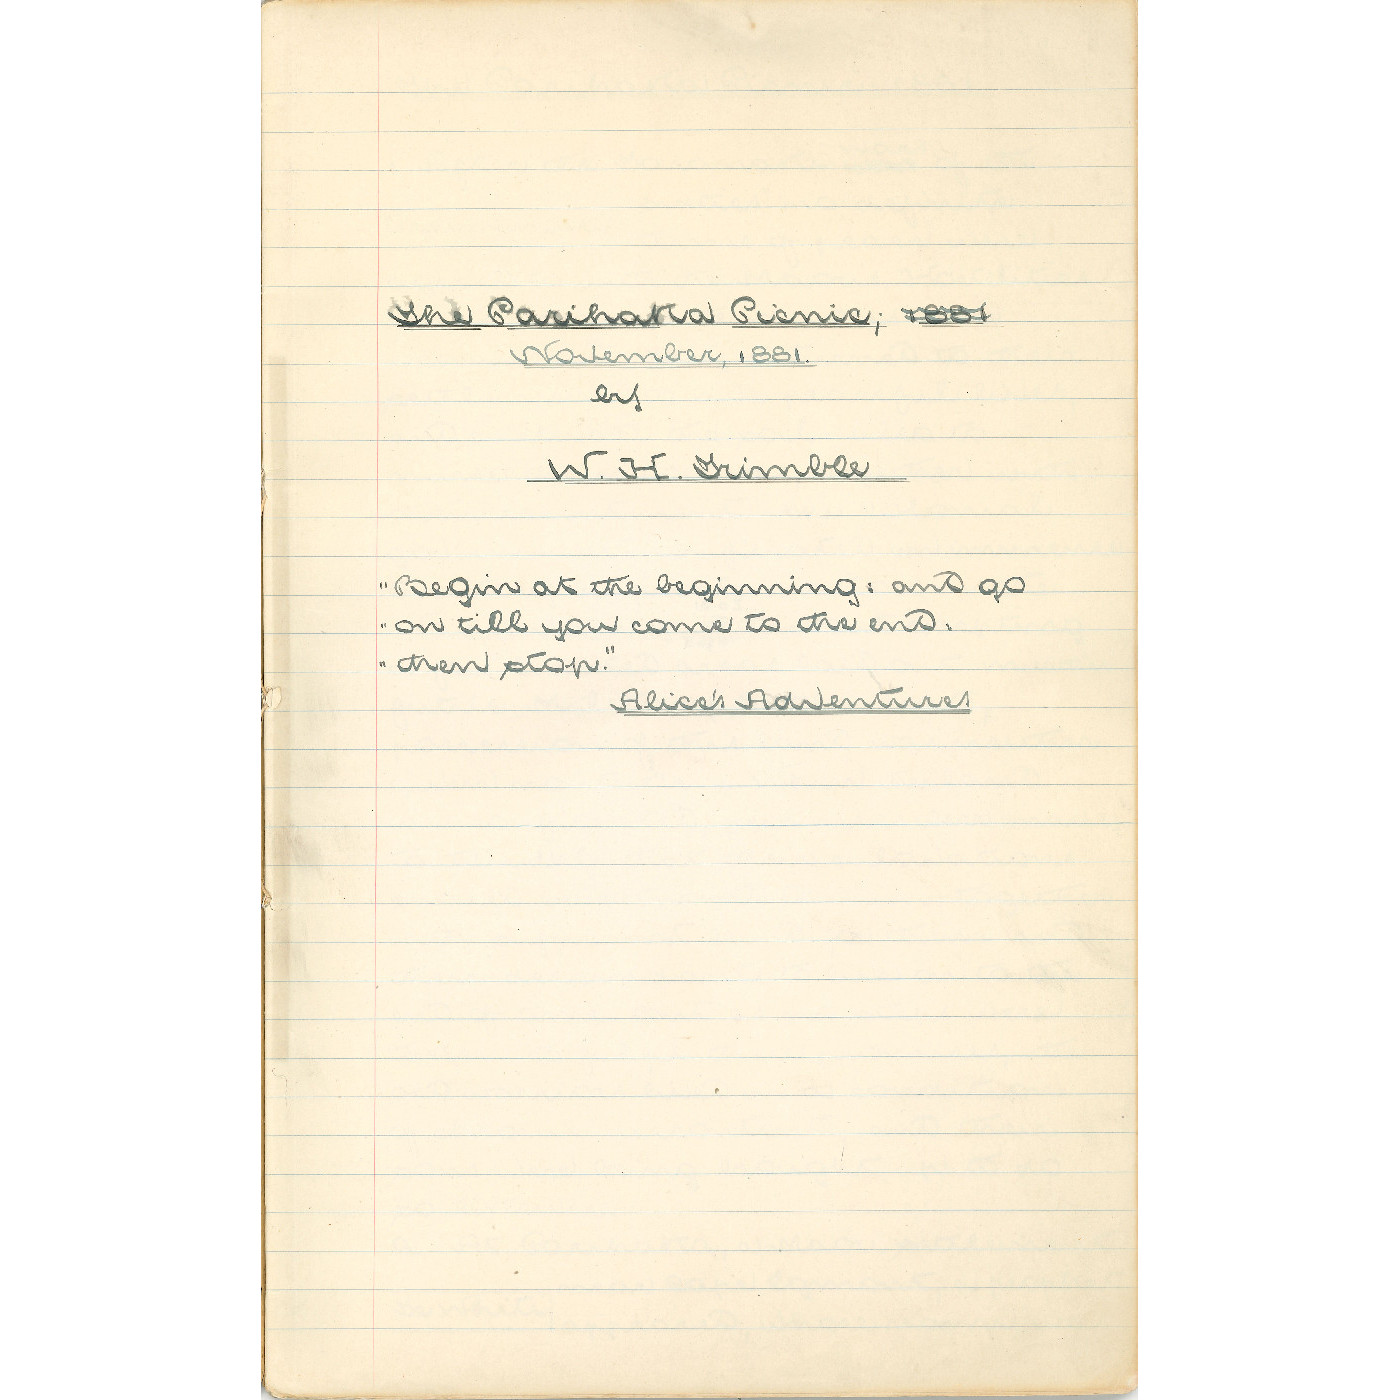 The Parihaka Picnic; 1881
November, 1881.
by
W. H. Trimble
"Begin at the beginning: and go
"on till you come to the end.
"then stop."
Alice's Adventures